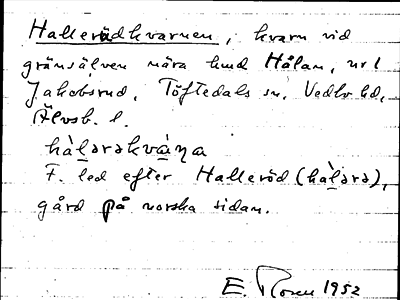 Hallerödkvarnen, kvarn vid
gränsälven nära lund Hålan, nr 1
Jakobsrud, Töftedals sn, Vedbo hd,
Älvsb. l.
hàl̠ərəkvàɳa
F. led efter Halleröd (hàl̠ərə),
gård på norska sidan.
E. Rosen 1952